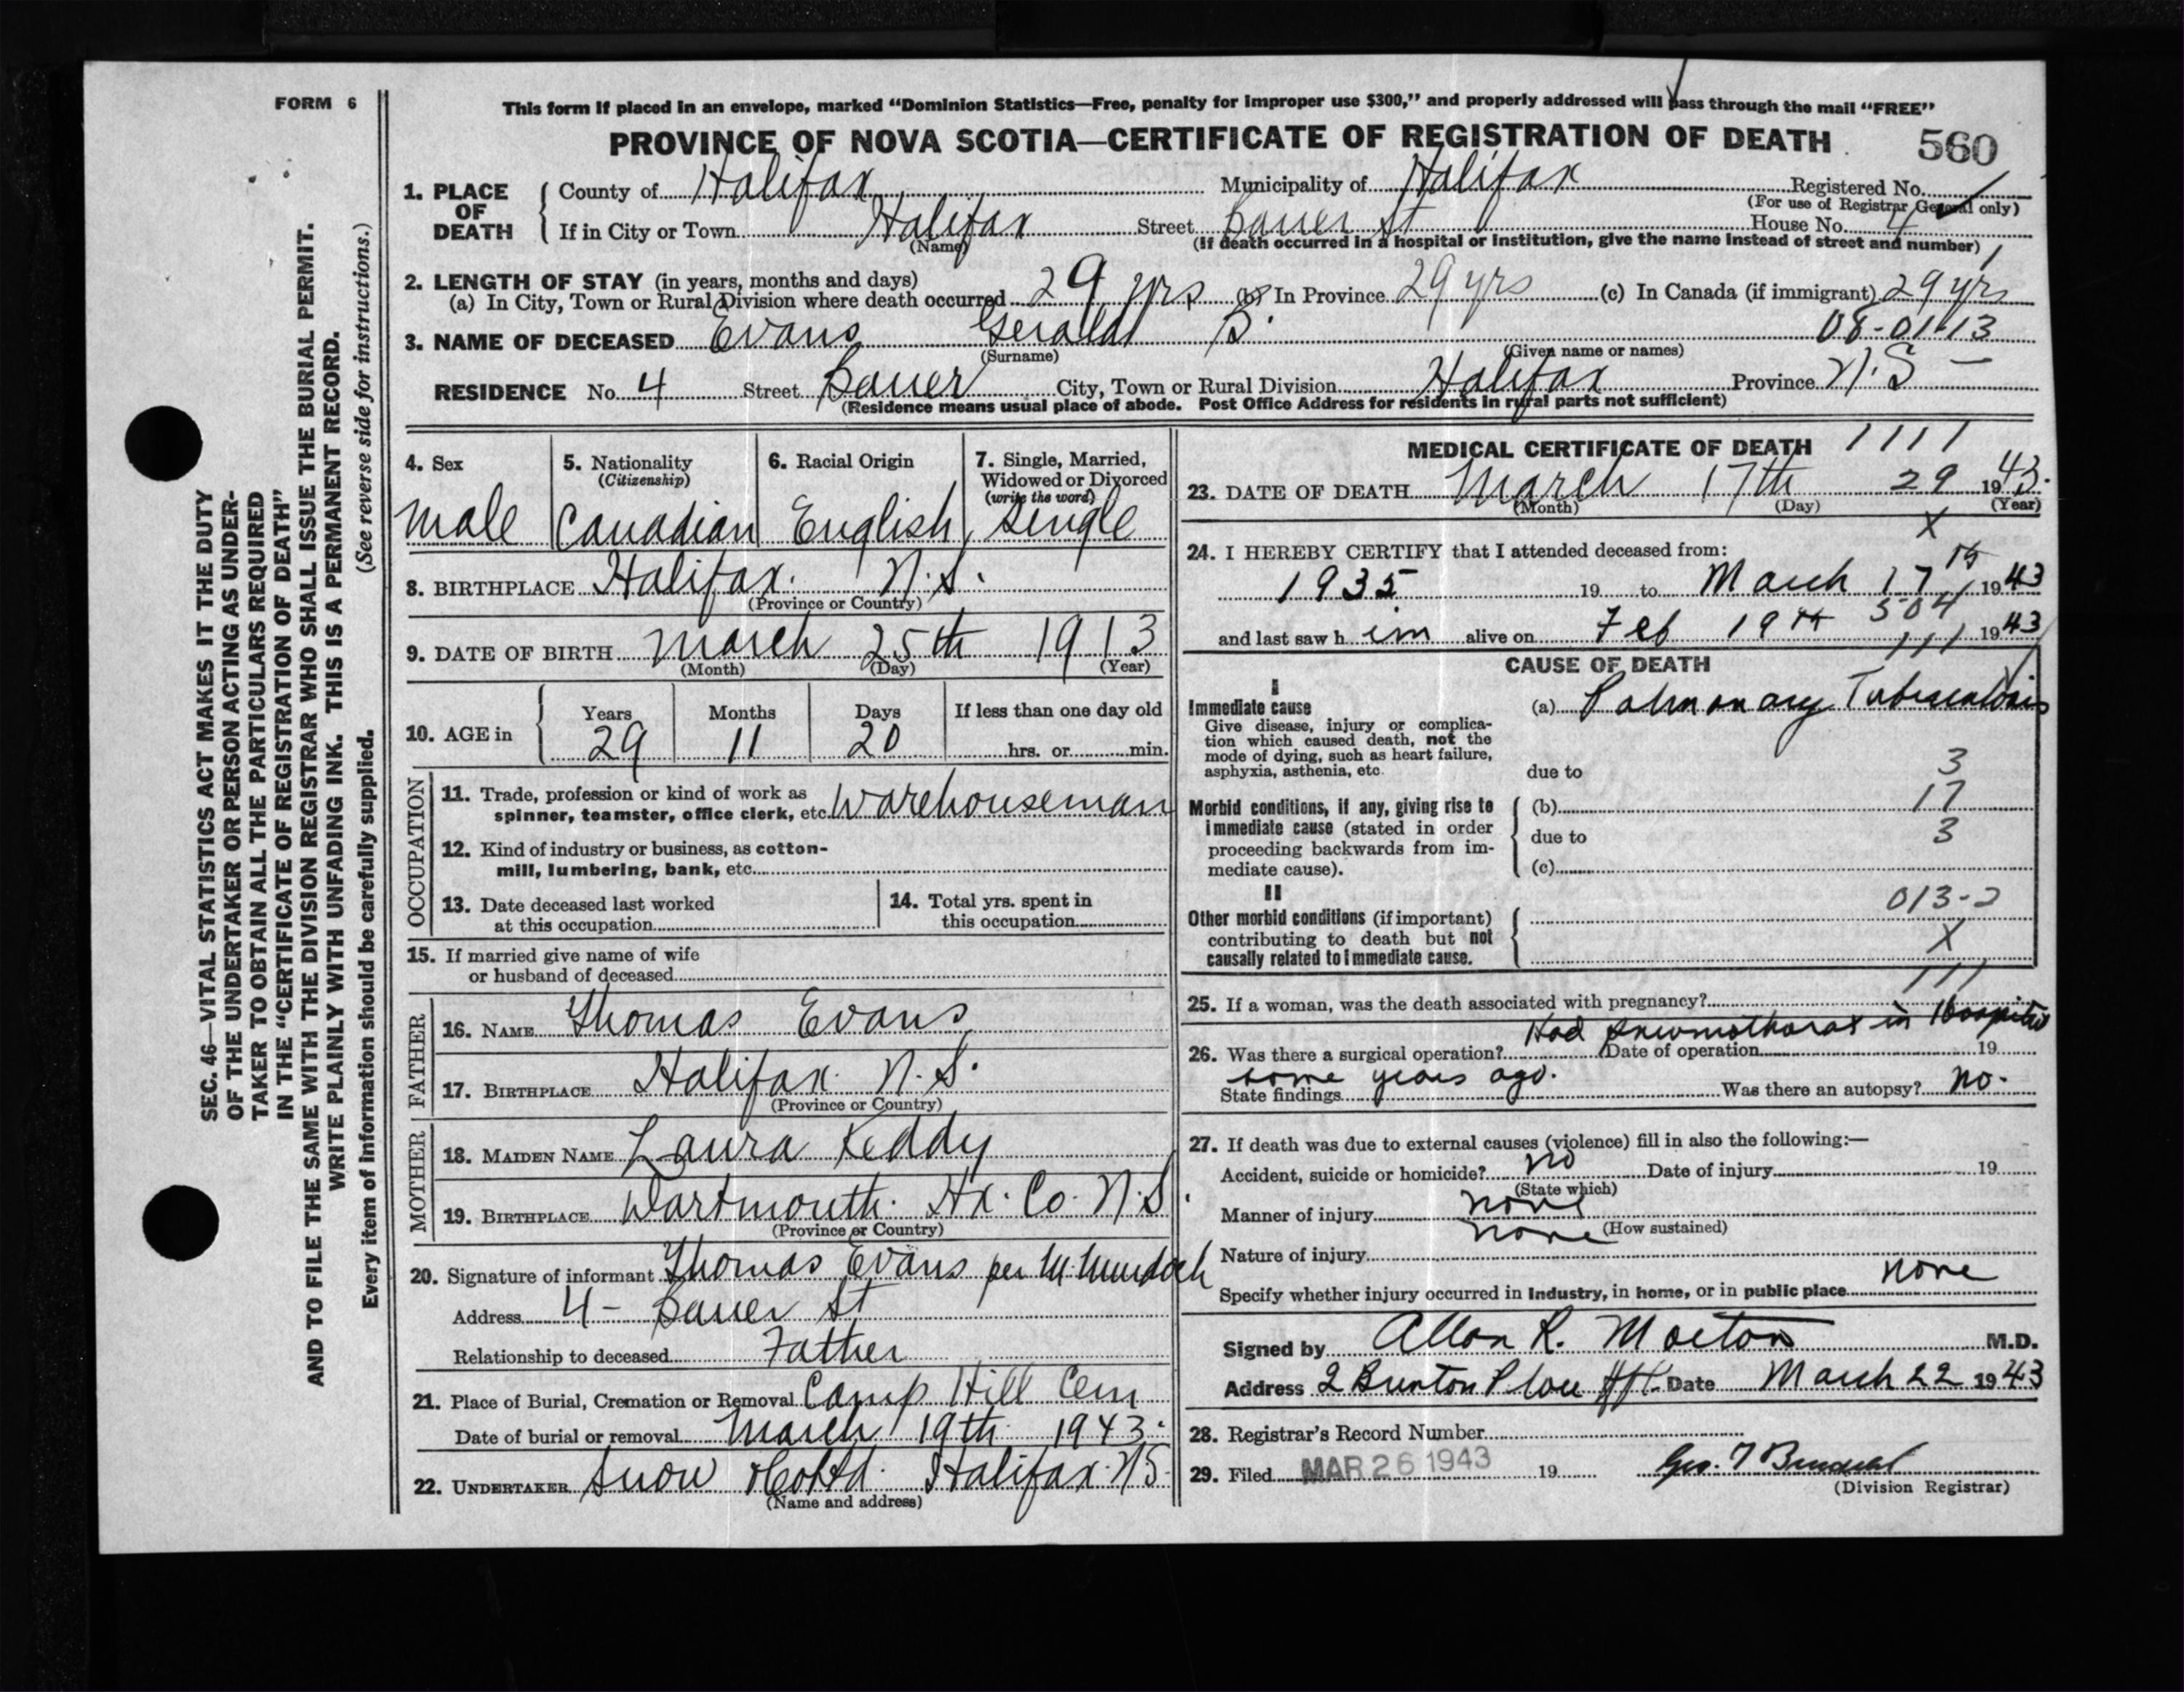 FORM 6
This form if placed in an envelope, marked "Dominion Statistics—Free, penalty for improper use $300," and properly addressed will pass through the mail "FREE"
PROVINCE OF NOVA SCOTIA—CERTIFICATE OF REGISTRATION OF DEATH 560
1. PLACE OF DEATH
County of Halifax Municipality of Halifax Registered No.
(For use of Registrar General only)
If in City or Town Halifax Street Bauer St House No. 4
(Name) (If death occurred in a hospital or institution, give the name instead of street and number)
2. LENGTH OF STAY (in years, months and days)
(a) In City, Town or Rural Division where death occurred 29 yrs (b) In Province 29 yrs (c) In Canada (if immigrant) 29 yrs
08-01-13
3. NAME OF DECEASED Evans Gerald B.
(Surname) (Given name or names)
RESIDENCE No. 4 Street Bauer City, Town or Rural Division Halifax Province N.S —
(Residence means usual place of abode. Post Office Address for residents in rural parts not sufficient)
4. Sex
male
5. Nationality
(Citizenship)
Canadian
6. Racial Origin
English
7. Single, Married,
Widowed or Divorced
(write the word)
Single
8. BIRTHPLACE Halifax. N.S.
(Province or Country)
9. DATE OF BIRTH March 25th 1913
(Month) (Day) (Year)
10. AGE in
Years Months Days If less than one day old
29 11 20 hrs. or min.
OCCUPATION
11. Trade, profession or kind of work as
spinner, teamster, office clerk, etc. Warehouseman
12. Kind of industry or business, as cotton-
mill, lumbering, bank, etc.
13. Date deceased last worked
at this occupation
14. Total yrs. spent in
this occupation
15. If married give name of wife
or husband of deceased
FATHER
16. NAME Thomas Evans
17. BIRTHPLACE Halifax. N.S.
(Province or Country)
MOTHER
18. MAIDEN NAME Laura Keddy
19. BIRTHPLACE Dartmouth. Hx. Co. N.S.
(Province or Country)
20. Signature of informant Thomas Evans per M Murdoch
Address 4- Bauer St
Relationship to deceased Father
21. Place of Burial, Cremation or Removal Camp Hill Cem
Date of burial or removal March 19th 1943.
22. UNDERTAKER Snow & Co Ltd. Halifax. N.S.
(Name and address)
MEDICAL CERTIFICATE OF DEATH 1111
23. DATE OF DEATH March 17th 29 1943.
(Month) (Day) (Year)
X
24. I HEREBY CERTIFY that I attended deceased from:
1935 19 to March 17 th 1943
504
and last saw h im alive on Feb 19 th 1943
111
CAUSE OF DEATH
I
Immediate cause
Give disease, injury or complica-
tion which caused death, not the
mode of dying, such as heart failure,
asphyxia, asthenia, etc.
(a) Pulmonary Tuberculosis
due to 3
Morbid conditions, if any, giving rise to
immediate cause (stated in order
proceeding backwards from im-
mediate cause).
(b) 17
due to 3
(c)
II
Other morbid conditions (if important)
contributing to death but not
causally related to immediate cause.
013-2
X
111
25. If a woman, was the death associated with pregnancy?
Had pneumothorax in Hospital
26. Was there a surgical operation? Date of operation 19
some years ago.
State findings Was there an autopsy? No.
27. If death was due to external causes (violence) fill in also the following:—
Accident, suicide or homicide? no Date of injury 19
(State which)
Manner of injury none
(How sustained)
Nature of injury none
Specify whether injury occurred in industry, in home, or in public place none
Signed by Allan R. Morton M.D.
Address 2 Brenton Place Hfx. Date March 22 1943
28. Registrar's Record Number
29. Filed MAR 26 1943 19 Geo. T
(Division Registrar)
SEC. 46—VITAL STATISTICS ACT MAKES IT THE DUTY
OF THE UNDERTAKER OR PERSON ACTING AS UNDER-
TAKER TO OBTAIN ALL THE PARTICULARS REQUIRED
IN THE "CERTIFICATE OF REGISTRATION OF DEATH"
AND TO FILE THE SAME WITH THE DIVISION REGISTRAR WHO SHALL ISSUE THE BURIAL PERMIT.
WRITE PLAINLY WITH UNFADING INK. THIS IS A PERMANENT RECORD.
Every item of information should be carefully supplied. (See reverse side for instructions.)